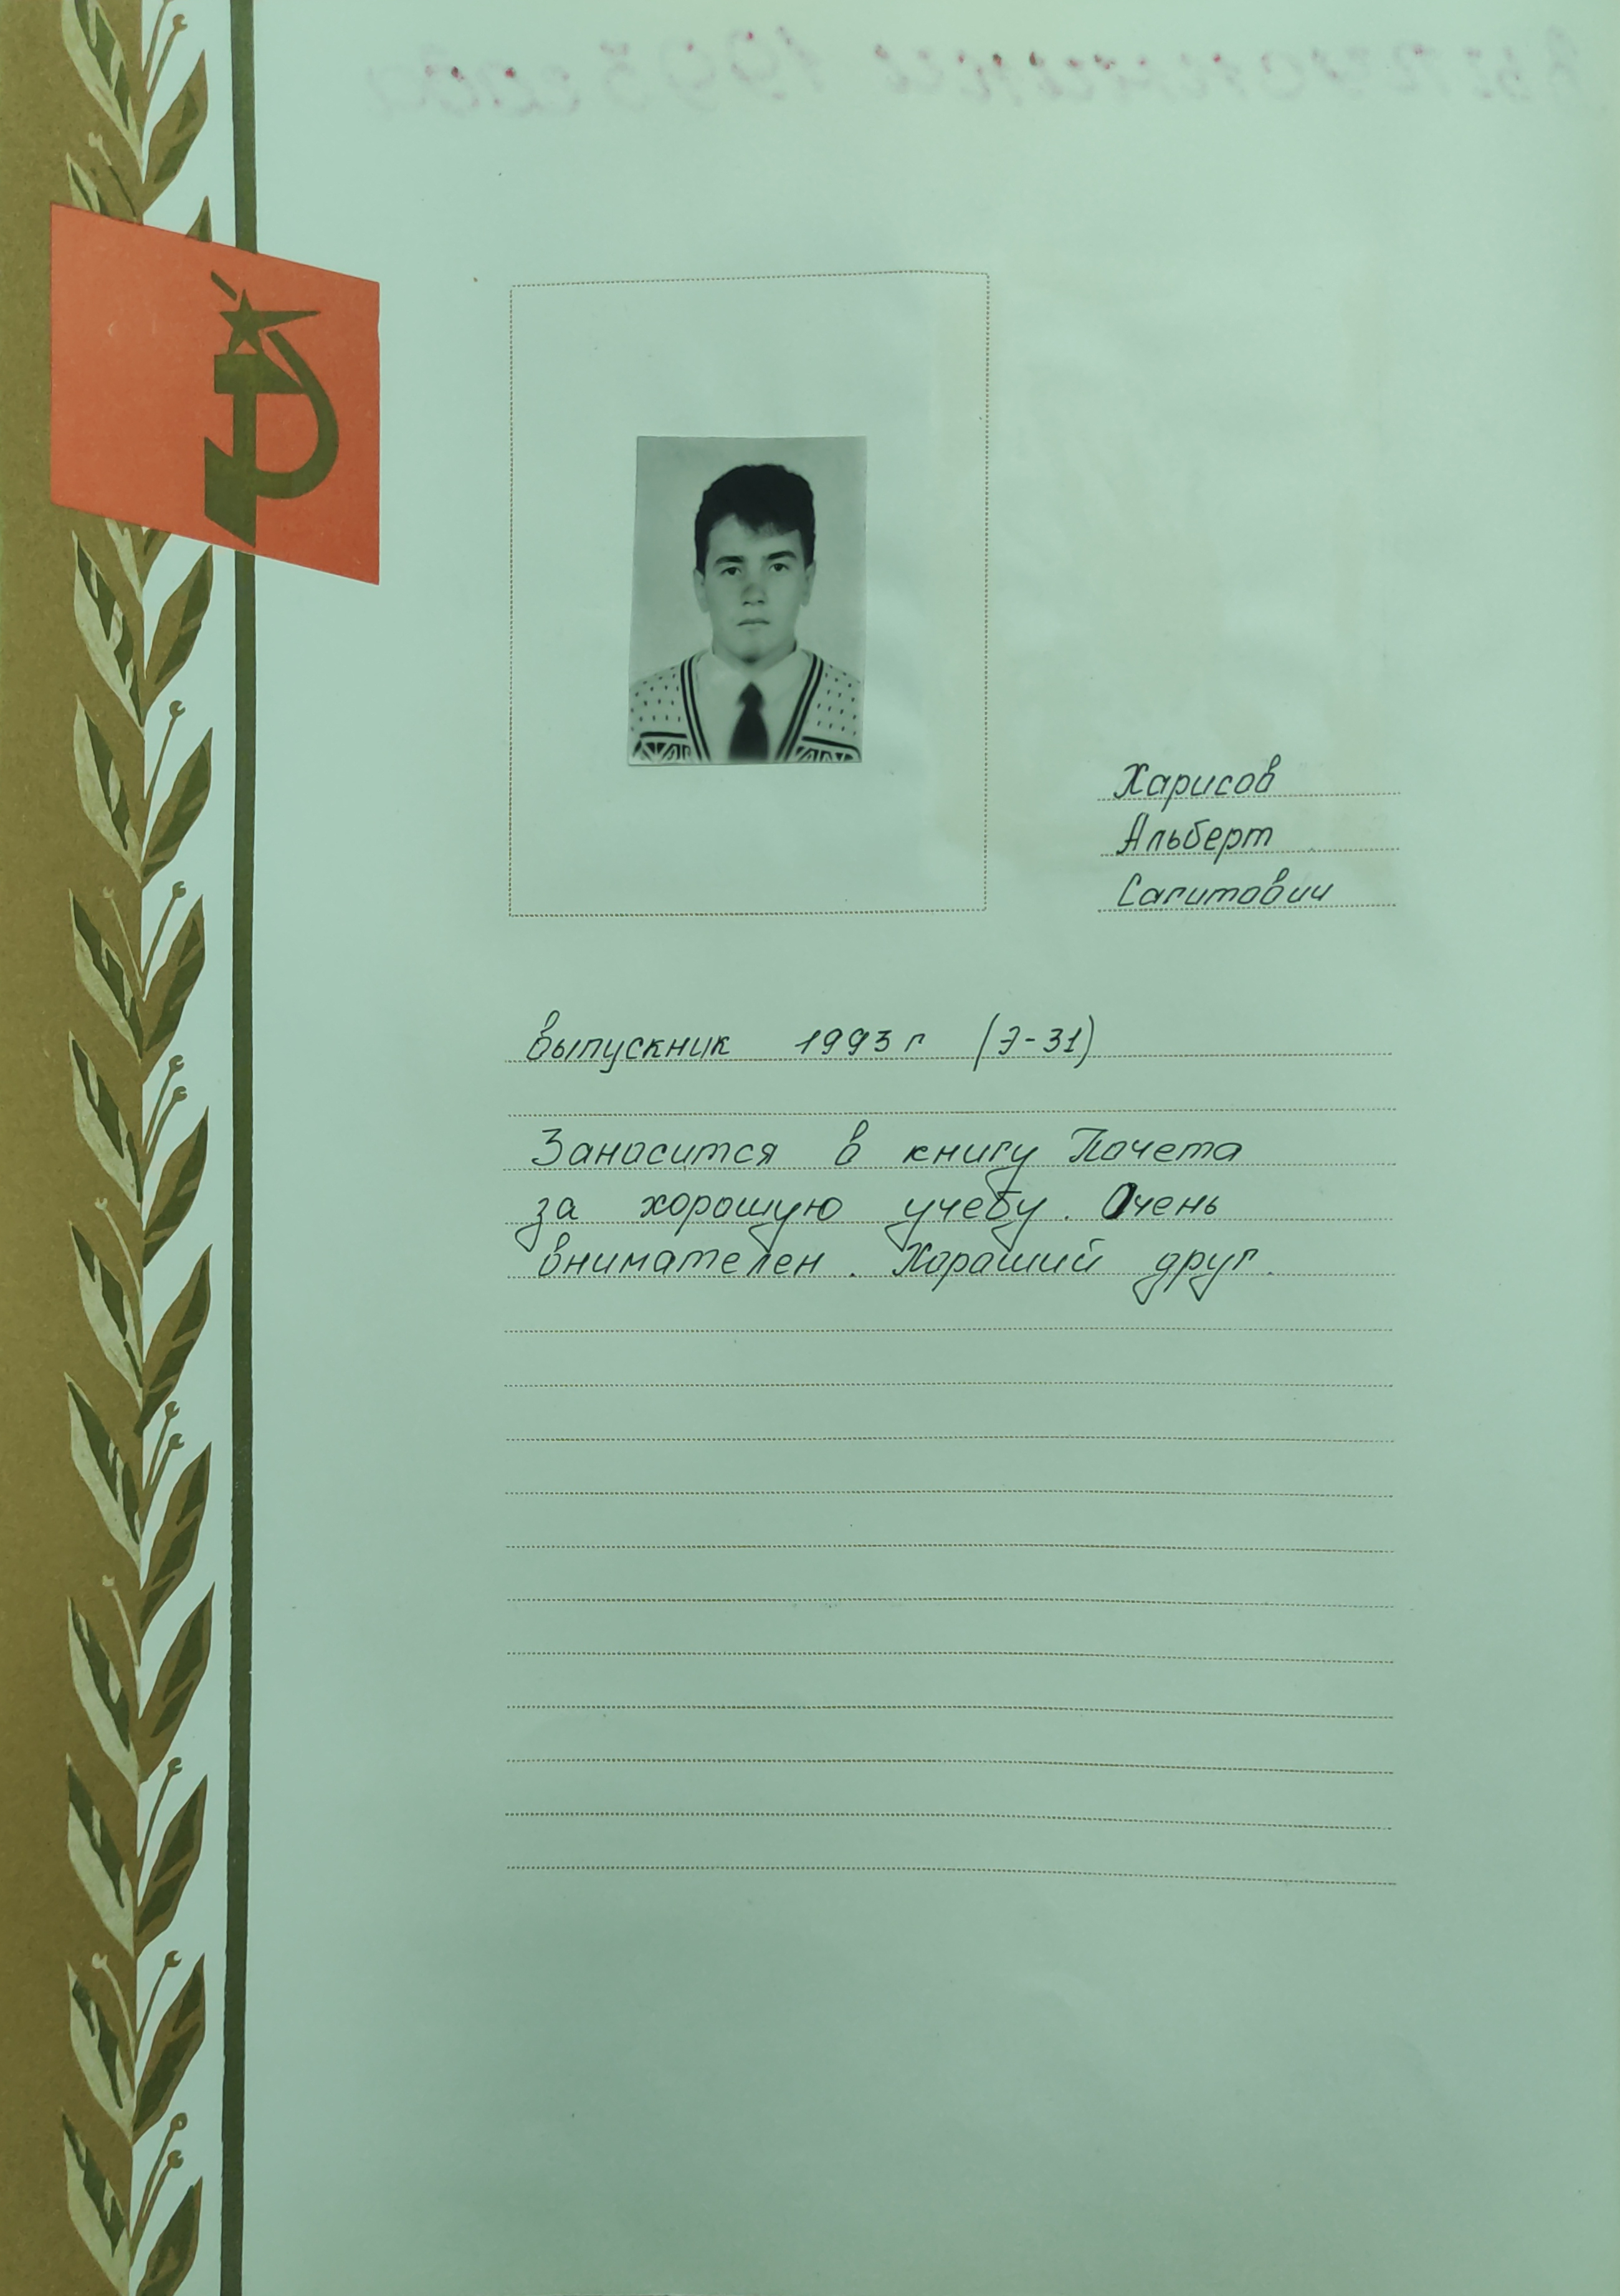 Харисов
Альберт
Сагитович
Выпускник 1993 г (Э-31)
Заносится в книгу Почета
за хорошую учебу. Очень
внимателен. Хороший друг.